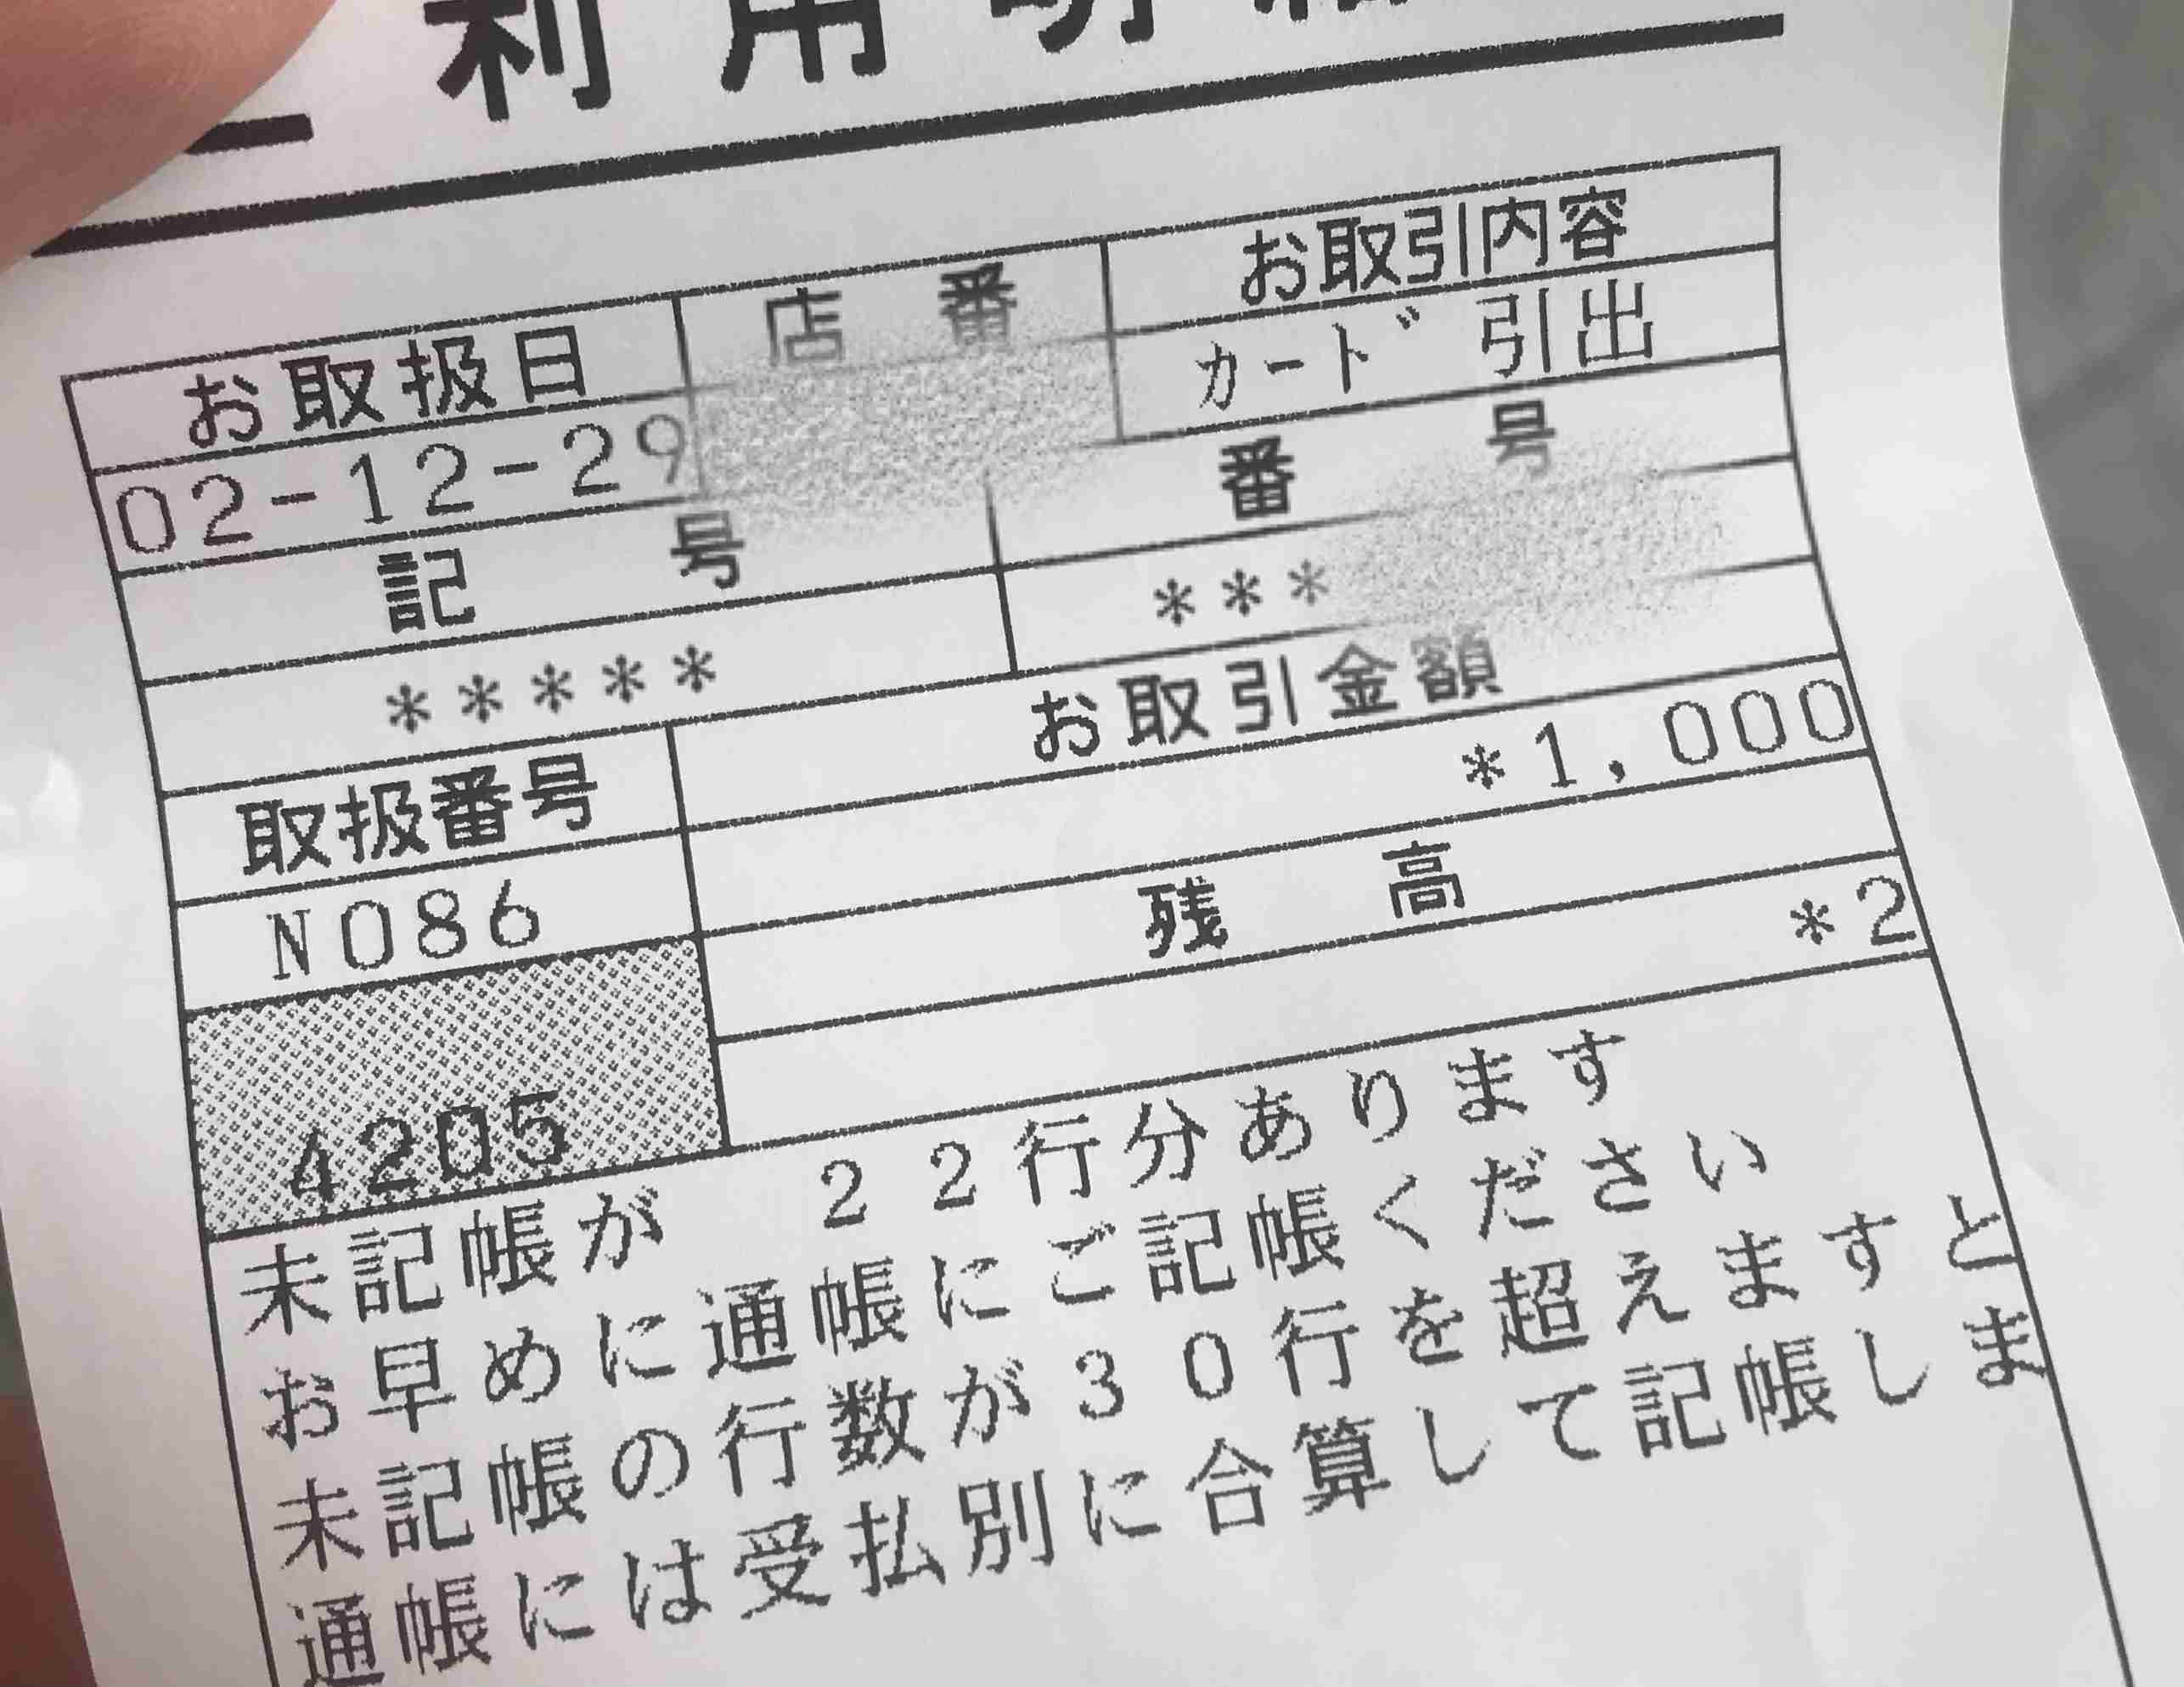 利用明細
お取扱日 店番 お取引内容
02-12-29 カード 引出
記号 番号
***** ***
取扱番号 お取引金額
N086 *1,000
残高
*2
4205
未記帳が 22行分あります
お早めに通帳にご記帳ください
未記帳の行数が30行を超えますと
通帳には受払別に合算して記帳しま